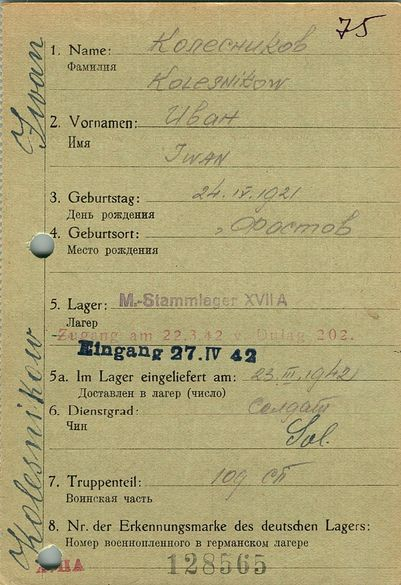 75
Kolesnikow Iwan
1. Name: Колесников
Фамилия
Kolesnikow
2. Vornamen: Иван
Имя
Iwan
3. Geburtstag: 24.IV.1921
День рождения
4. Geburtsort:
Место рождения
5. Lager: M.-Stammlager XVII A
Лагер
Zugang am 22.3.42 Dulag 202.
Eingang 27. IV 42
5a. Im Lager eingeliefert am: 23.III.1942
Доставлен в лагер (число)
6. Dienstgrad: солдат
Чин
Sol.
7. Truppenteil: 109 сп
Воинская часть
8. Nr. der Erkennungsmarke des deutschen Lagers:
Номер военнопленного в германском лагере
128565